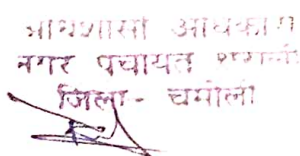 अधिशासी अधिकारी
नगर पंचायत
जिला - चमोली